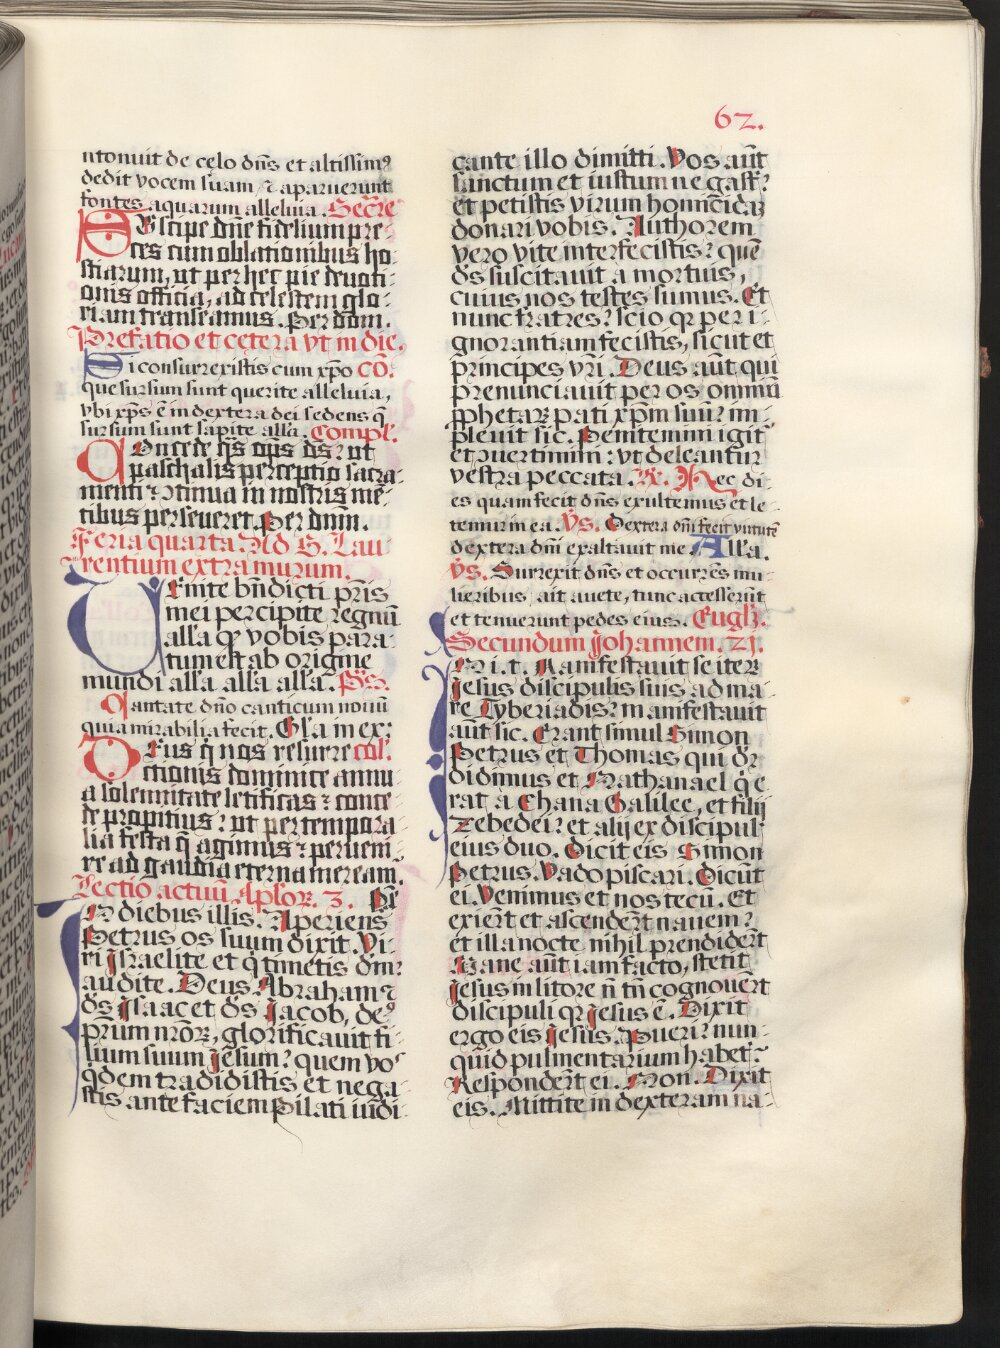 62.
ntonuit de celo dñs et altissim⁹
dedit vocem suam ⁊ aparuerunt
fontes aquarum alleluia. Secre
Suscipe dñe fidelium pre-
ces cum oblationibus ho-
stiarum, ut per hec pie deuoti-
onis officia, ad celestem glo-
riam transeamus. Per dom.
Prefatio et cetera vt in die.
Si consurrexistis cum xpo Cō.
que sursum sunt querite alleluia,
vbi xps ē in dextera dei sedens q̄
sursum sunt sapite alla. Compl.
Concede q̄s ops ds? ut
paschalis perceptio sacra-
menti ⁊ ↄtinua in nostris mē-
tibus perseueret. Per dnm.
Feria quarta. Ad S. Lau-
rentium extra muram.
Uenite bñdicti pris
mei percipite regnū
alla qd vobis para-
tum est ab origine
mundi alla alla alla. Ps.
Cantate dño canticum nouū
quia mirabilia fecit. Gla in ex:
Deus q̇ nos resurre Col.
ctionis dominice annu-
a solennitate letificas: conce-
de propitius? ut per tempora-
lia festa q̄ agimus: perueni-
re ad gaudia eterna mereamr.
Lectio actuū Aplor. 3. Per
In diebus illis. Aperiens
Petrus os suum dixit. Vi-
ri Israelite et q̇ timetis dm?
audite. Deus Abraham ⁊
ds Isaac et ds Jacob, de⁹
prum nror, glorificauit fi-
lium suum Jesum? quem vos
qdem tradidistis et nega-
stis ante faciem Pilati iudi-
cante illo dimitti. Vos aūt
sanctum et iustum negast?
et petistis virum homicidaʒ
donari vobis. Authorem
vero vite interfecistis? quē
ds suscitauit a mortuis,
cuius nos testes sumus. Et
nunc fratres? scio qꝛ per i-
gnorantiam fecistis, sicut et
principes vri. Deus aūt qui
prenunciauit per os omniū
pphetaꝝ pati xpm suū? im-
pleuit sic. Penitemini igit
et ↄuertimini: vt deleantur
vestra peccata. R. Hec di-
es quam fecit dñs exultemus et le-
temur in ea. Vs. Dextera dñi fecit virtutē
dextera dñi exaltauit me. Alla.
Vs. Surrexit dñs et occurrēs mu-
lieribus ait auete, tunc accesserūt
et tenuerunt pedes eius. Euglʒ.
Secundum Johannem. 21.
In i. t. Manifestauit se iterꝝ
Jesus discipulis suis ad ma-
re Tyberiadis? manifestauit
aūt sic. Erant simul Simon
Petrus et Thomas qui dr
didimus et Nathanael q̇ e-
rat a Chana Galilee, et filij
Zebedei? et alij ex discipul
eius duo. Dicit eis Simon
Petrus. Vado piscari. Dicūt
ei. Venimus et nos tecū. Et
exierūt et ascenderūt nauem?
et illa nocte nihil prendiderūt
Mane aūt iam facto, stetit
Jesus in litore ñ tñ cognouerūt
discipuli qꝛ Jesus ē. Dixit
ergo eis Jesus. Pueri? nun-
quid pulmentarium habet?
Responderūt ei. Non. Dixit
eis. Mittite in dexteram na-